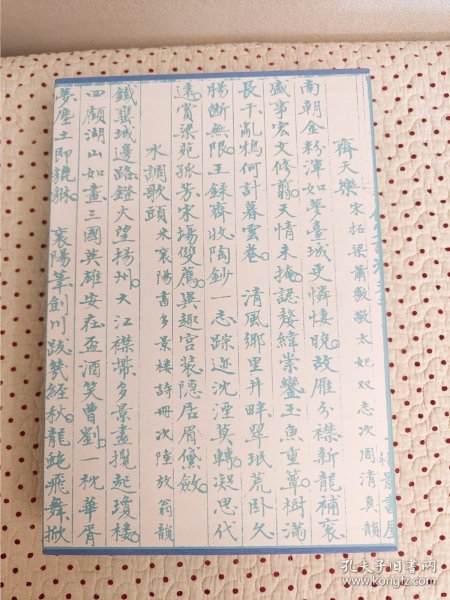 梅景書屋
齊天樂 宋拓梁蕭敷敬太妃双志次周清真韻
南朝金粉渾如夢臺城更憐悽晚故雁分襟新龍補袞
盛事宏文修翦天情未掩認婺緯崇鑾玉魚重簟樹滿
長干亂鴉何計暮雲卷 清風鄉里井畔翠珉荒卧久
腸斷無限王録齊收陶鈔一志踪迹沈湮莫轉凝思代
遠賞梁苑孤芳宋塲雙薦異趣宮裝隱居眉儻斂
水調歌頭 米襄陽書多景樓詩冊次陸放翁韻
鐵甕城邊路鐙火望揚州大江襟帶多景盡攬玼瓊樓
四顧湖山如畫三國英雄安在盃酒笑曹劉一枕華胥
夢塵土即貔貅 襄陽筆劍川跋幾經秋龍跑飛舞掀
孔夫子旧书网
www.kongfz.com